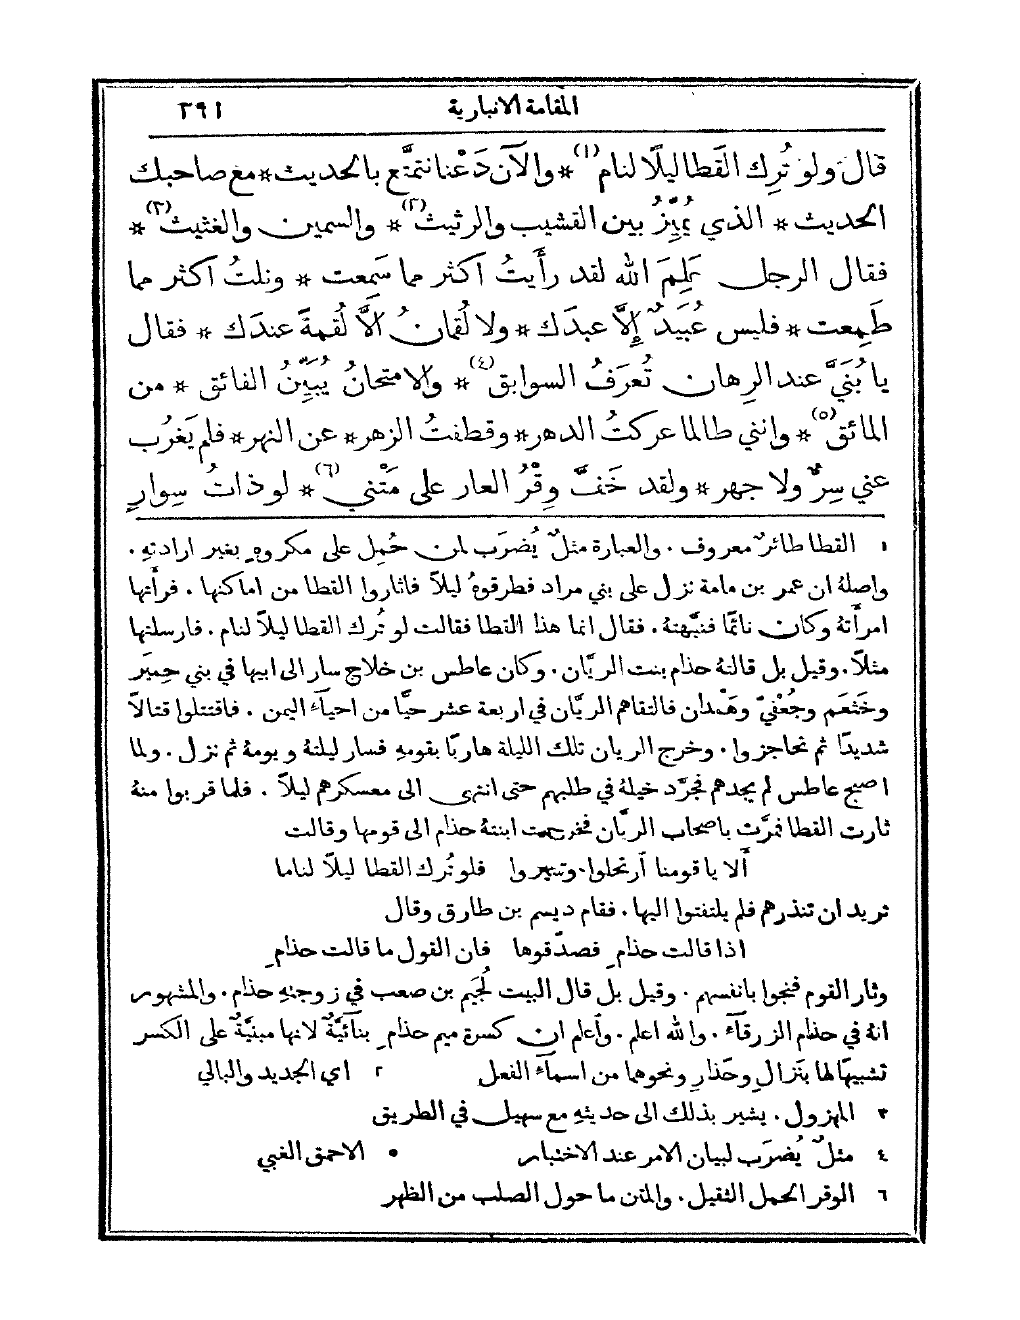 المقامة الانبارية ٣٩١
قال ولو تُرِك القطا ليلًا لنام (١) * والآن دَعْنا نتمتَّع بالحديث * مع صاحبك
الحديث * الذي يميِّزُ بين القشيب والرثيث (٢) * والسمين والغثيث (٣) *
فقال الرجل عَلِمَ الله لقد رأَيتُ اكثر مما سَمعت * ونلتُ اكثر مما
طَمِعت * فليس عُبَيدٌ إِلَّا عبدَك * ولا لُقمانُ الَّا لُقمةً عندَك * فقال
يا بُنَيَّ عند الرِهان تُعرَفُ السوابق (٤) * والامتحانُ يُبيِّنُ الفائق * من
المائق (٥) * وانني طالما عركتُ الدهر * وقطفتُ الزهر * عن النهر * فلم يَغرُب
عني سِرٌّ ولا جهر * ولقد خَفَّ وِقْرُ العار على مَتْني (٦) * لو ذاتُ سِوارٍ
١ القطا طائرٌ معروف . والعبارة مثلٌ يُضرَب لمن حُمِل على مكروهٍ بغير ارادتهِ .
واصلهُ ان عمر بن مامة نزل على بني مراد فطرقوهُ ليلاً فاثاروا القطا من اماكنها . فرأَتها
امرأَتهُ وكان نائمًا فنبَّهتهُ . فقال انما هذا القطا فقالت لو تُرك القطا ليلاً لنام . فارسلتها
مثلاً . وقيل بل قالتهُ حذام بنت الريَّان . وكان عاطس بن خلاج سار الى ابيها في بني حِميَر
وخَثعَم وجُعْفيّ وهَمْدان فالتقاهم الريَّان في اربعة عشر حيًّا من احياءِ اليمن . فاقتتلوا قتالاً
شديدًا ثم تحاجزوا . وخرج الريان تلك الليلة هاربًا بقومهِ فسار ليلتهُ ويومهُ ثم نزل . ولما
اصبح عاطس لم يجدهم فجرَّد خيلهُ في طلبهم حتى انتهى الى معسكرهم ليلاً . فلما قربوا منهُ
ثارت القطا فمرَّت باصحاب الريَّان فخرجت ابنتهُ حذام الى قومها وقالت
أَلا يا قومنا أرتحلوا وسيروا فلو تُرك القطا ليلاً لناما
تريد ان تنذرهم فلم يلتفتوا اليها . فقام ديسم بن طارق وقال
اذا قالت حذامِ فصدّقوها فان القول ما قالت حذامِ
وثار القوم فنجوا بانفسهم . وقيل بل قال البيت لُجَيم بن صعب في زوجتهِ حذام . والمشهور
انهُ في حذام الزرقآءِ . والله اعلم . وأعلم ان كسرة ميم حذامِ بنآئيَّةٌ لانها مبنيَّةٌ على الكسر
تشبيهًا لها بنَزالِ وحَذارِ ونحوهما من اسمآءِ الفعل ٢ اي الجديد والبالي
٣ المهزول . يشير بذلك الى حديثهِ مع سهيل في الطريق
٤ مثلٌ يُضرَب لبيان الامر عند الاختبار ٥ الاحمق الغبي
٦ الوقر الحمل الثقيل . والمتن ما حول الصلب من الظهر